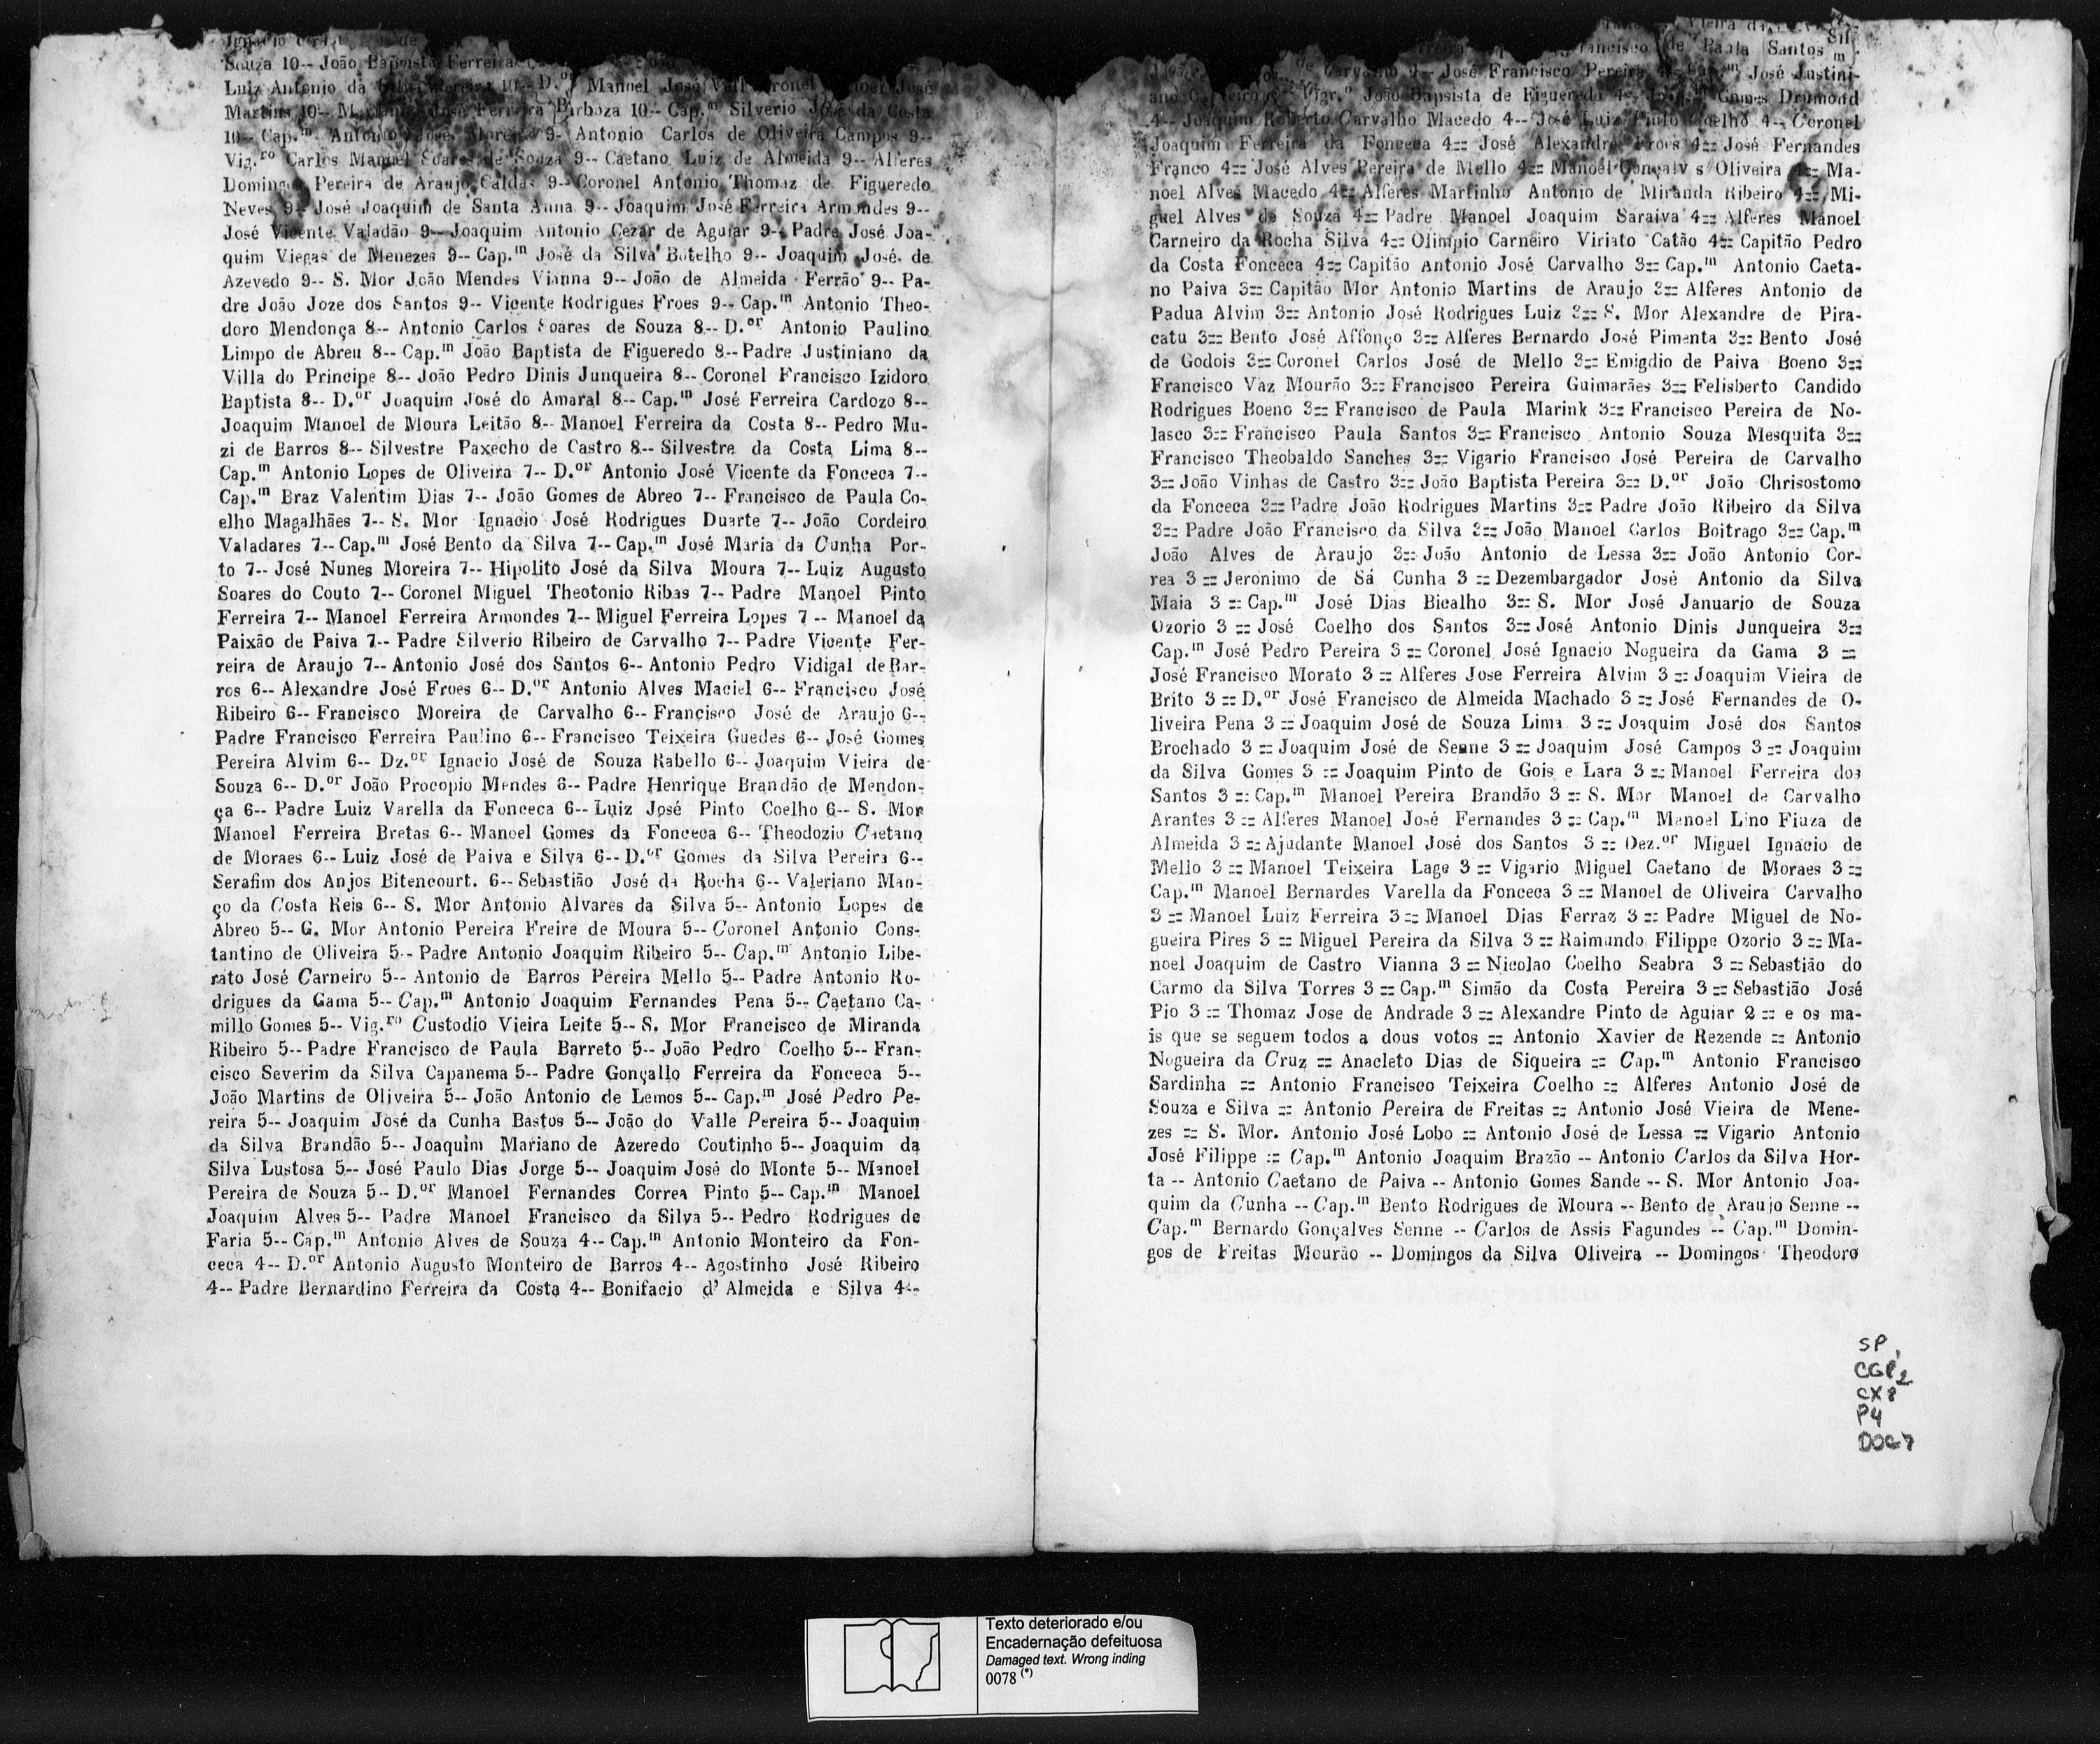 Souza 10-- João Bapsista Ferreira
Luiz Antonio da Silva Pereira 10-- D.or Manoel José José
Martins 10-- José Ferreira Barboza 10-- Cap.m Silverio José da Costa
10-- Cap.m Antonio José Moreira 9-- Antonio Carlos de Oliveira Campos 9--
Vig.ro Carlos Manuel Soares de Souza 9-- Caetano Luiz de Almeida 9-- Alferes
Domingos Pereira de Araujo Caldas 9-- Coronel Antonio Thomaz de Figueredo
Neves 9-- José Joaquim de Santa Anna 9-- Joaquim José Ferreira Armondes 9--
José Vicente Valadão 9-- Joaquim Antonio Cezar de Aguiar 9-- Padre José Joa-
quim Viegas de Menezes 9-- Cap.m José da Silva Botelho 9-- Joaquim José de
Azevedo 9-- S. Mor João Mendes Vianna 9-- João de Almeida Ferrão 9-- Pa-
dre João Joze dos Santos 9-- Vicente Rodrigues Froes 9-- Cap.m Antonio Theo-
doro Mendonça 8-- Antonio Carlos Soares de Souza 8-- D.or Antonio Paulino
Limpo de Abreu 8-- Cap.m João Baptista de Figueredo 8-- Padre Justiniano da
Villa do Principe 8-- João Pedro Dinis Junqueira 8-- Coronel Francisco Izidoro
Baptista 8-- D.or Joaquim José do Amaral 8-- Cap.m José Ferreira Cardozo 8--
Joaquim Manoel de Moura Leitão 8-- Manoel Ferreira da Costa 8-- Pedro Mu-
zi de Barros 8-- Silvestre Paxecho de Castro 8-- Silvestre da Costa Lima 8--
Cap.m Antonio Lopes de Oliveira 7-- D.or Antonio José Vicente da Fonceca 7--
Cap.m Braz Valentim Dias 7-- João Gomes de Abreo 7-- Francisco de Paula Co-
elho Magalhães 7-- S. Mor Ignacio José Rodrigues Duarte 7-- João Cordeiro
Valadares 7-- Cap.m José Bento da Silva 7-- Cap.m José Maria da Cunha Por-
to 7-- José Nunes Moreira 7-- Hipolito José da Silva Moura 7-- Luiz Augusto
Soares do Couto 7-- Coronel Miguel Theotonio Ribas 7-- Padre Manoel Pinto
Ferreira 7-- Manoel Ferreira Armondes 7-- Miguel Ferreira Lopes 7 -- Manoel da
Paixão de Paiva 7-- Padre Silverio Ribeiro de Carvalho 7-- Padre Vicente Fer-
reira de Araujo 7-- Antonio José dos Santos 6-- Antonio Pedro Vidigal de Bar-
ros 6-- Alexandre José Froes 6-- D.or Antonio Alves Maciel 6-- Francisco José
Ribeiro 6-- Francisco Moreira de Carvalho 6-- Francisco José de Araujo 6--
Padre Francisco Ferreira Paulino 6-- Francisco Teixeira Guedes 6-- José Gomes
Pereira Alvim 6-- Dz.or Ignacio José de Souza Rabello 6-- Joaquim Vieira de
Souza 6-- D.or João Procopio Mendes 6-- Padre Henrique Brandão de Mendon-
ça 6-- Padre Luiz Varella da Fonceca 6-- Luiz José Pinto Coelho 6-- S. Mor
Manoel Ferreira Bretas 6-- Manoel Gomes da Fonceca 6-- Theodozio Caetano
de Moraes 6-- Luiz José de Paiva e Silva 6-- D.or Gomes da Silva Pereira 6--
Serafim dos Anjos Bitencourt. 6-- Sebastião José da Rocha 6-- Valeriano Man-
ço da Costa Reis 6-- S. Mor Antonio Alvares da Silva 5-- Antonio Lopes de
Abreo 5-- G. Mor Antonio Pereira Freire de Moura 5-- Coronel Antonio Cons-
tantino de Oliveira 5-- Padre Antonio Joaquim Ribeiro 5-- Cap.m Antonio Libe-
rato José Carneiro 5-- Antonio de Barros Pereira Mello 5-- Padre Antonio Ro-
drigues da Gama 5-- Cap.m Antonio Joaquim Fernandes Pena 5-- Caetano Ca-
millo Gomes 5-- Vig.ro Custodio Vieira Leite 5-- S. Mor Francisco de Miranda
Ribeiro 5-- Padre Francisco de Paula Barreto 5-- João Pedro Coelho 5-- Fran-
cisco Severim da Silva Capanema 5-- Padre Gonçallo Ferreira da Fonceca 5--
João Martins de Oliveira 5-- João Antonio de Lemos 5-- Cap.m José Pedro Pe-
reira 5-- Joaquim José da Cunha Bastos 5-- João do Valle Pereira 5-- Joaquim
da Silva Brandão 5-- Joaquim Mariano de Azeredo Coutinho 5-- Joaquim da
Silva Lustosa 5-- José Paulo Dias Jorge 5-- Joaquim José do Monte 5-- Manoel
Pereira de Souza 5-- D.or Manoel Fernandes Correa Pinto 5-- Cap.m Manoel
Joaquim Alves 5-- Padre Manoel Francisco da Silva 5-- Pedro Rodrigues de
Faria 5-- Cap.m Antonio Alves de Souza 4-- Cap.m Antonio Monteiro da Fon-
ceca 4-- D.or Antonio Augusto Monteiro de Barros 4-- Agostinho José Ribeiro
4-- Padre Bernardino Ferreira da Costa 4-- Bonifacio d' Almeida e Silva 4--
Francisco de Paula Santos
de Carvalho 4-- José Francisco Pereira 4-- Cap.m José Justini-
ano Carneiro Vigr.o João Bapsista de Figueredo 4-- Gomes Drumond
4-- Joaquim Roberto Carvalho Macedo 4-- José Luiz Pinto Coelho 4-- Coronel
Joaquim Ferreira da Fonceca 4== José Alexandre Froes 4== José Fernandes
Franco 4== José Alves Pereira de Mello 4== Manoel Gonçalv s Oliveira 4== Ma-
noel Alves Macedo 4== Alferes Martinho Antonio de Miranda Ribeiro 4== Mi-
guel Alves de Souza 4== Padre Manoel Joaquim Saraiva 4== Alferes Manoel
Carneiro da Rocha Silva 4== Olimpio Carneiro Viriato Catão 4== Capitão Pedro
da Costa Fonceca 4== Capitão Antonio José Carvalho 3== Cap.m Antonio Caeta-
no Paiva 3== Capitão Mor Antonio Martins de Araujo 3== Alferes Antonio de
Padua Alvim 3== Antonio José Rodrigues Luiz 3== S. Mor Alexandre de Pira-
catu 3== Bento José Affonço 3== Alferes Bernardo José Pimenta 3== Bento José
de Godois 3== Coronel Carlos José de Mello 3== Emigdio de Paiva Boeno 3==
Francisco Vaz Mourão 3== Francisco Pereira Guimarães 3== Felisberto Candido
Rodrigues Boeno 3== Francisco de Paula Marink 3== Francisco Pereira de No-
lasco 3== Francisco Paula Santos 3== Francisco Antonio Souza Mesquita 3==
Francisco Theobaldo Sanches 3== Vigario Francisco José Pereira de Carvalho
3== João Vinhas de Castro 3== João Baptista Pereira 3== D.or João Chrisostomo
da Fonceca 3== Padre João Rodrigues Martins 3== Padre João Ribeiro da Silva
3== Padre João Francisco da Silva 3== João Manoel Carlos Boitrago 3== Cap.m
João Alves de Araujo 3== João Antonio de Lessa 3== João Antonio Cor-
rea 3 == Jeronimo de Sá Cunha 3 == Dezembargador José Antonio da Silva
Maia 3 == Cap.m José Dias Bicalho 3== S. Mor José Januario de Souza
Ozorio 3 == José Coelho dos Santos 3== José Antonio Dinis Junqueira 3==
Cap.m José Pedro Pereira 3 == Coronel José Ignacio Nogueira da Gama 3 ==
José Francisco Morato 3 == Alferes Jose Ferreira Alvim 3 == Joaquim Vieira de
Brito 3 == D.or José Francisco de Almeida Machado 3 == José Fernandes de O-
liveira Pena 3 == Joaquim José de Souza Lima 3 == Joaquim José dos Santos
Brochado 3 == Joaquim José de Senne 3 == Joaquim José Campos 3 == Joaquim
da Silva Gomes 3 == Joaquim Pinto de Gois e Lara 3 == Manoel Ferreira dos
Santos 3 == Cap.m Manoel Pereira Brandão 3 == S. Mor Manoel de Carvalho
Arantes 3 == Alferes Manoel José Fernandes 3 == Cap.m Manoel Lino Fiuza de
Almeida 3 == Ajudante Manoel José dos Santos 3 == Dez.or Miguel Ignacio de
Mello 3 == Manoel Teixeira Lage 3 == Vigario Miguel Caetano de Moraes 3 ==
Cap.m Manoel Bernardes Varella da Fonceca 3 == Manoel de Oliveira Carvalho
3 == Manoel Luiz Ferreira 3 == Manoel Dias Ferraz 3 == Padre Miguel de No-
gueira Pires 3 == Miguel Pereira da Silva 3 == Raimundo Filippe Ozorio 3 == Ma-
noel Joaquim de Castro Vianna 3 == Nicolao Coelho Seabra 3 == Sebastião do
Carmo da Silva Torres 3 == Cap.m Simão da Costa Pereira 3 == Sebastião José
Pio 3 == Thomaz Jose de Andrade 3 == Alexandre Pinto de Aguiar 2 == e os ma-
is que se seguem todos a dous votos == Antonio Xavier de Rezende == Antonio
Nogueira da Cruz == Anacleto Dias de Siqueira == Cap.m Antonio Francisco
Sardinha == Antonio Francisco Teixeira Coelho == Alferes Antonio José de
Souza e Silva == Antonio Pereira de Freitas == Antonio José Vieira de Mene-
zes == S. Mor. Antonio José Lobo == Antonio José de Lessa == Vigario Antonio
José Filippe == Cap.m Antonio Joaquim Brazão -- Antonio Carlos da Silva Hor-
ta -- Antonio Caetano de Paiva -- Antonio Gomes Sande -- S. Mor Antonio Joa-
quim da Cunha -- Cap.m Bento Rodrigues de Moura -- Bento de Araujo Senne --
Cap.m Bernardo Gonçalves Senne -- Carlos de Assis Fagundes -- Cap.m Domin-
gos de Freitas Mourão -- Domingos da Silva Oliveira -- Domingos Theodoro
SP
CGP2
CX8
P4
DOC7
Texto deteriorado e/ou
Encadernação defeituosa
Damaged text. Wrong inding
0078 (*)